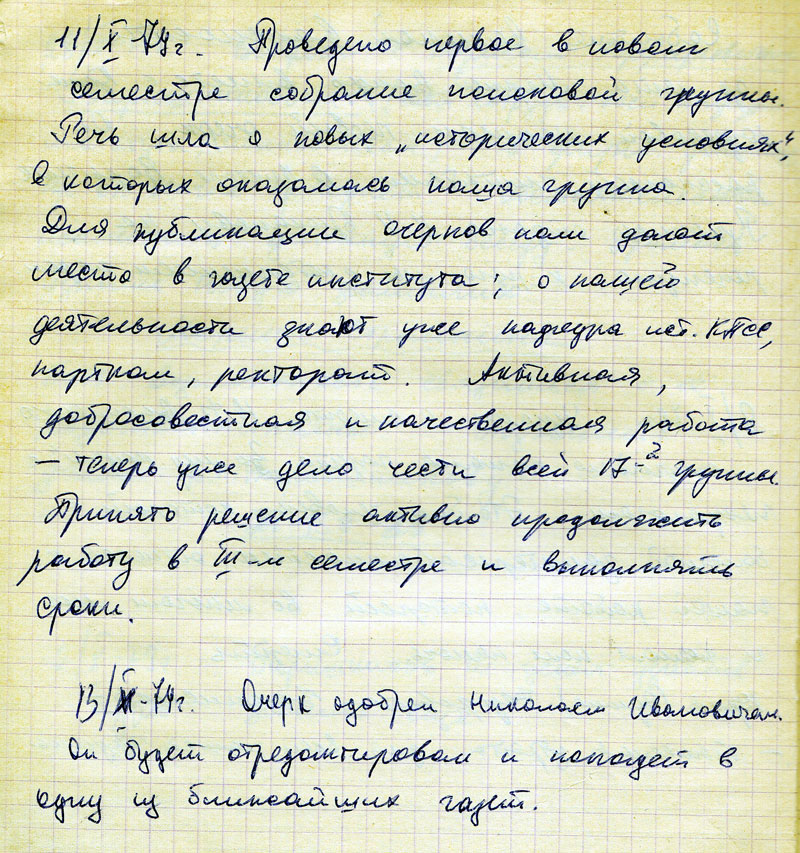 11/X 74 г. Проведено первое в новом
семестре собрание поисковой группы.
Речь шла о новых „исторических условиях“,
в которых оказалась наша группа.
Для публикации очерков нам дают
место в газете института; о нашей
деятельности знают уже кафедра ист. КПСС,
партком, ректорат. Активная,
добросовестная и качественная работа
– теперь уже дело чести всей 17-й группы.
Принято решение активно продолжить
работу в III-м семестре и выполнять
сроки.
13/X-74 г. Очерк одобрен Николаем Ивановичем.
Он будет отредактирован и попадет в
одну из ближайших газет.